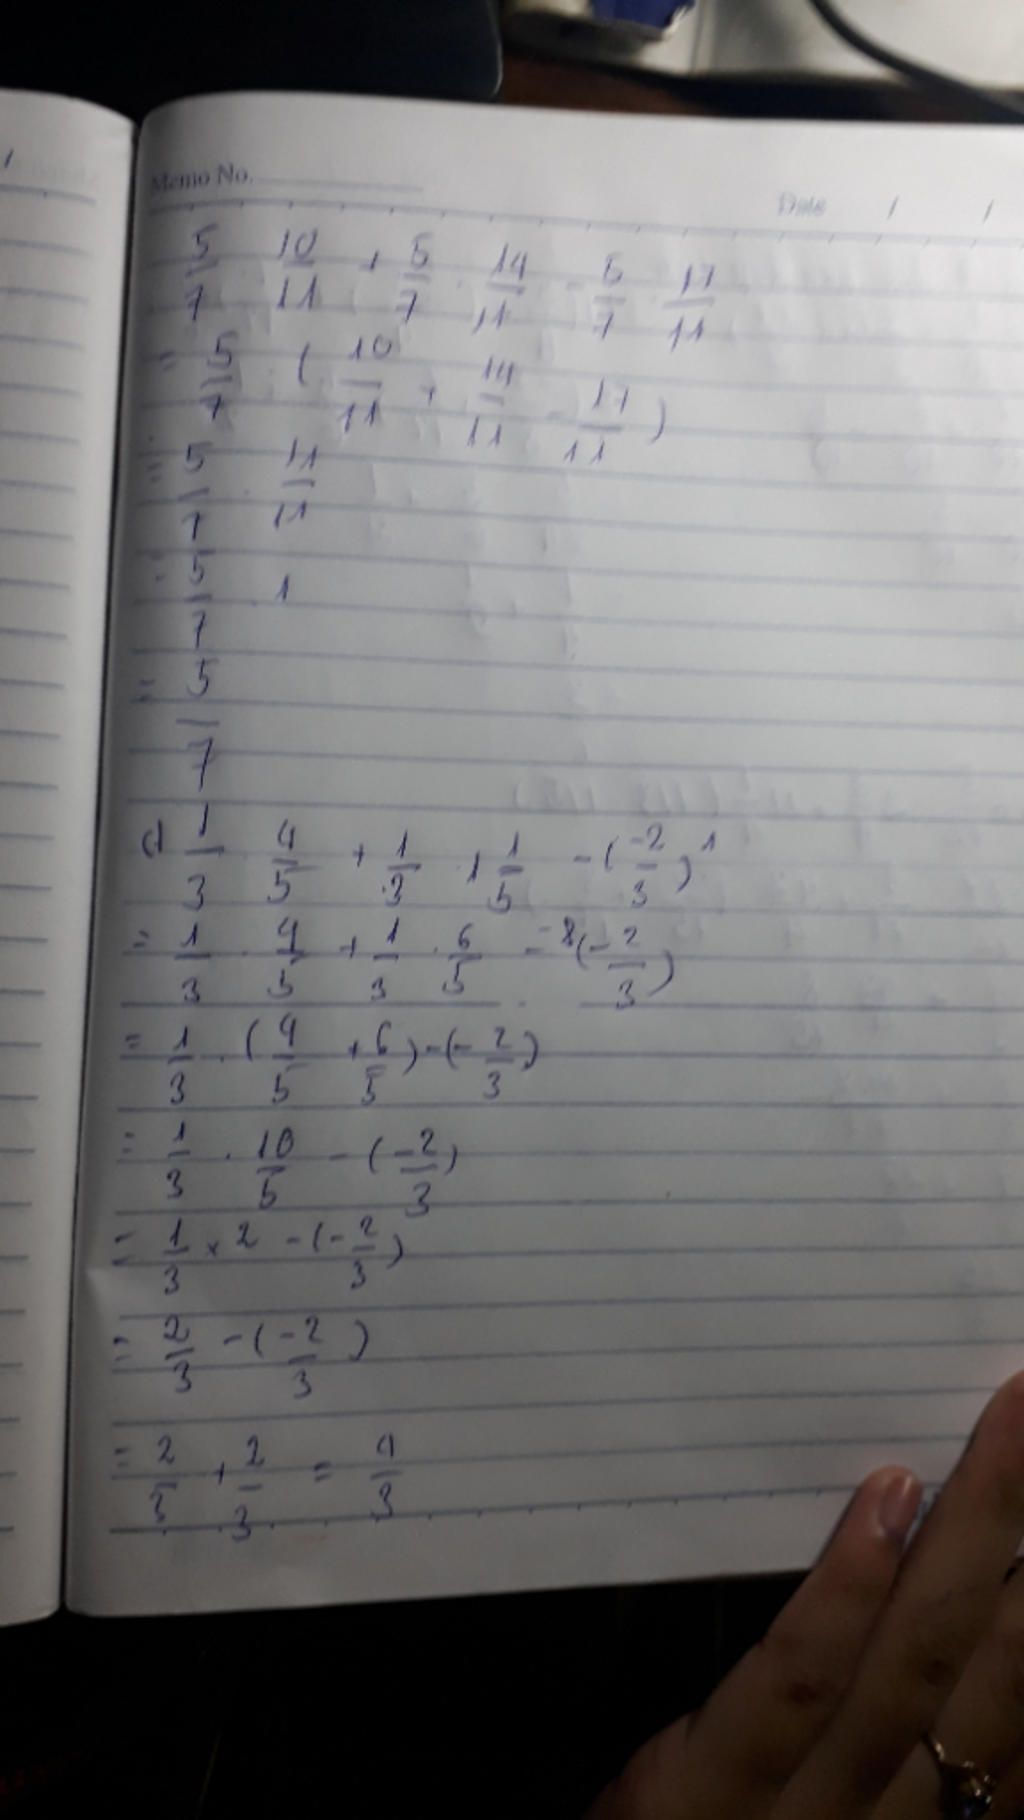 Memo No.
Date / /
5/7 · 10/11 + 5/7 · 14/11 - 5/7 · 17/11
= 5/7 · ( 10/11 + 14/11 - 17/11 )
= 5/7 · 11/11
= 5/7 · 1
= 5/7
d) 1/3 · 4/5 + 1/3 · 1 1/5 - (-2/3)^1
= 1/3 · 4/5 + 1/3 · 6/5 - (-2/3)
= 1/3 · (4/5 + 6/5) - (-2/3)
= 1/3 · 10/5 - (-2/3)
= 1/3 × 2 - (-2/3)
= 2/3 - (-2/3)
= 2/3 + 2/3 = 4/3